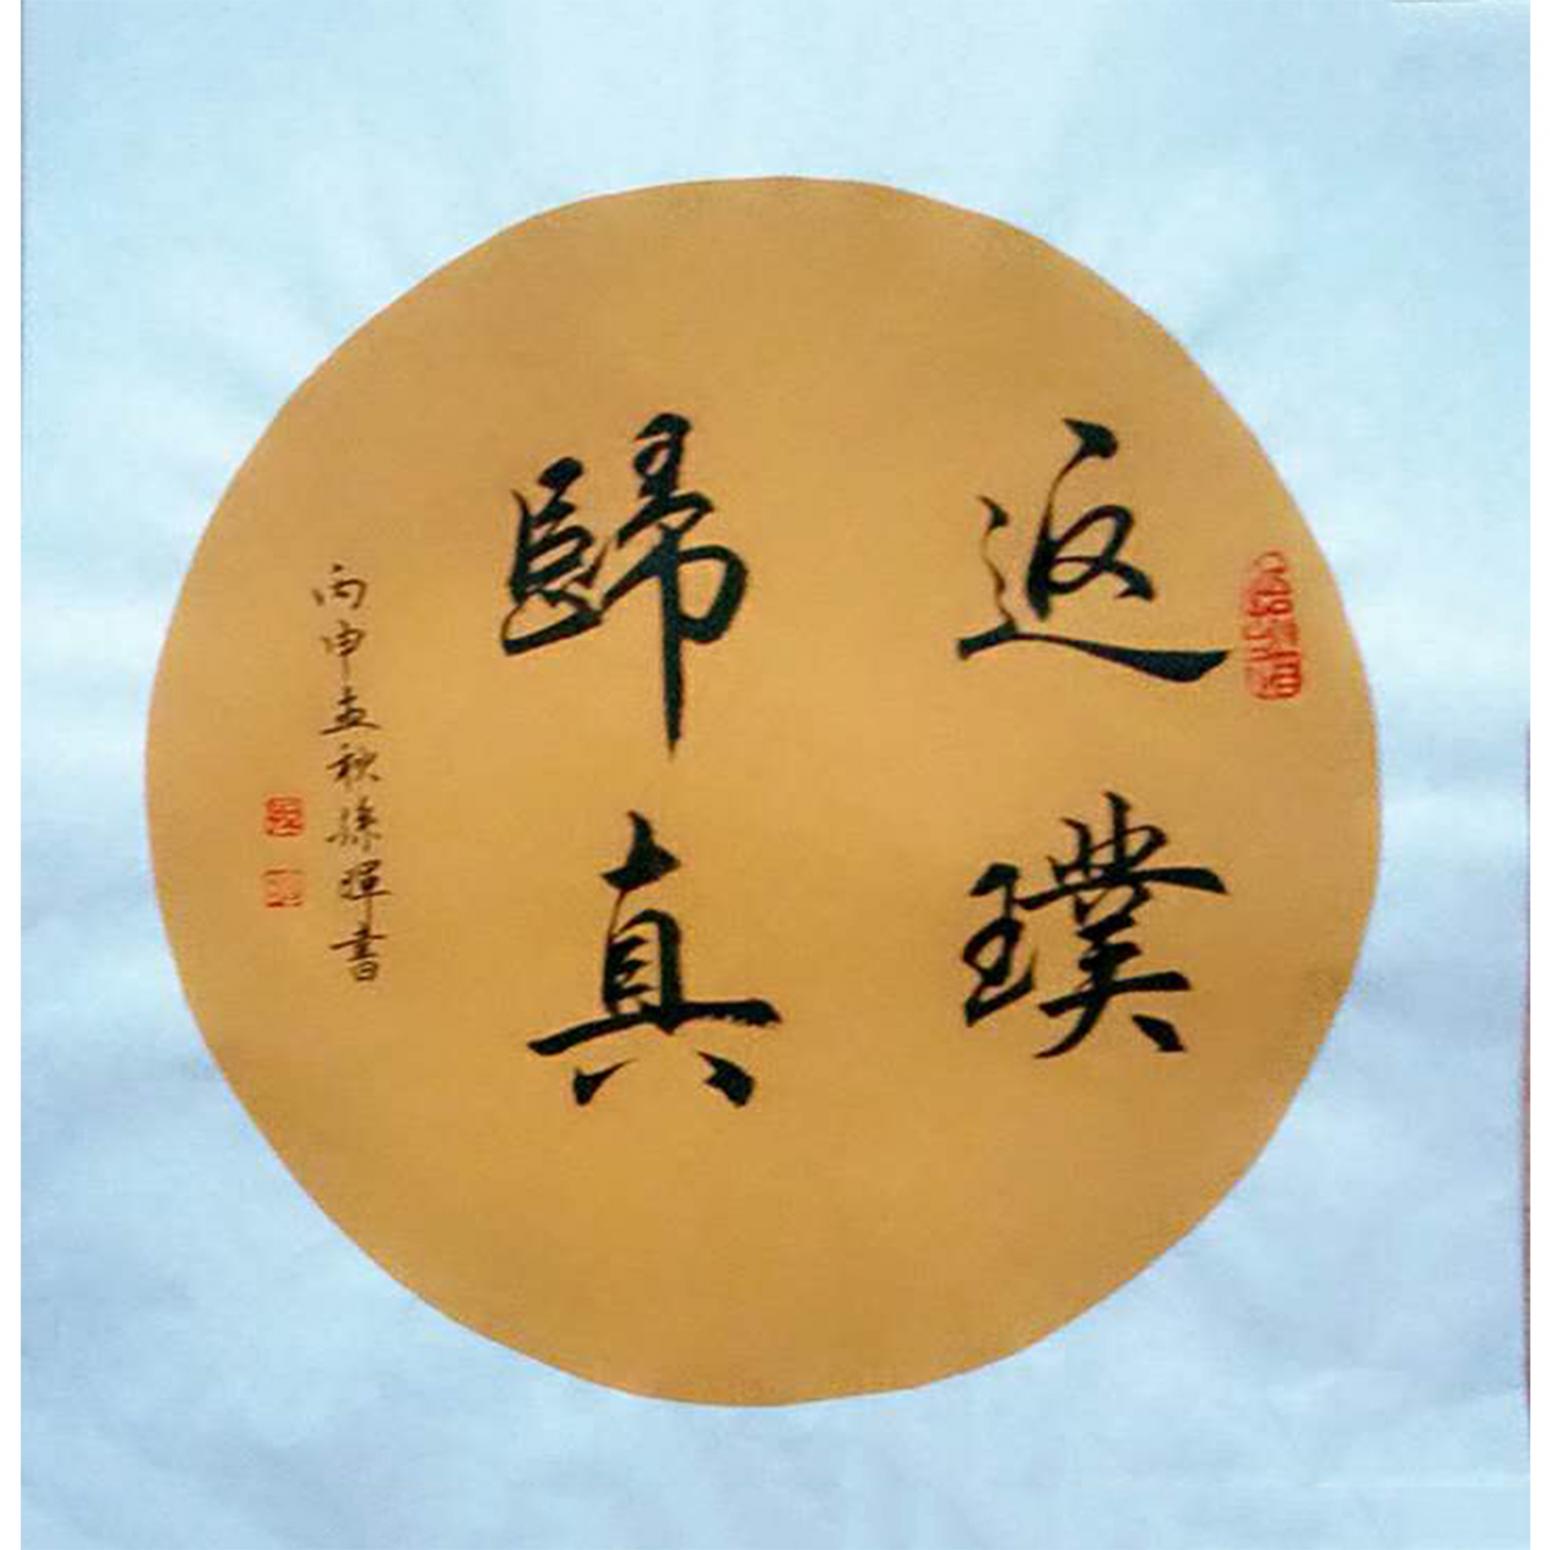 返璞
歸真
丙申孟秋孫暉書